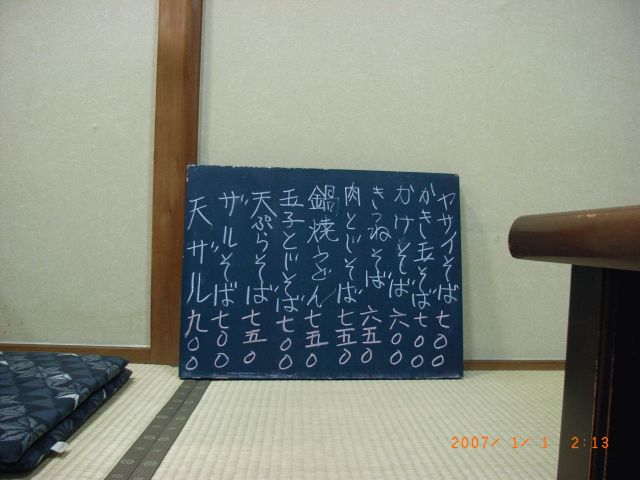 ヤサイそば 七〇〇
かき玉そば 七〇〇
かけそば 六〇〇
きつねそば 六五〇
肉とじそば 七五〇
鍋焼うどん 七五〇
玉子とじそば 七〇〇
天ぷらそば 七五〇
ザルそば 七〇〇
天ザル 九〇〇
2007/ 1/ 1 2:13